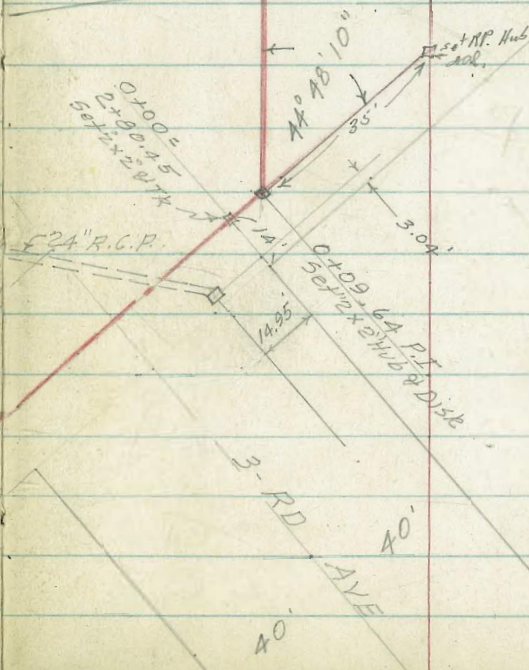 Set RP. Hub
44° 48' 10"
35'
0+00=
2+80.45
Set 2"x2" & TK
3.04'
14'
24" R.C.P.
0+09.64 P.I
Set 2"x2" Hub & Disk
14.95
3-RD AVE
40'
40'